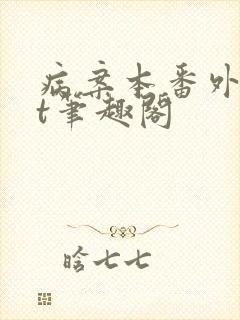 病案本番外
t笔趣阁
晗七七